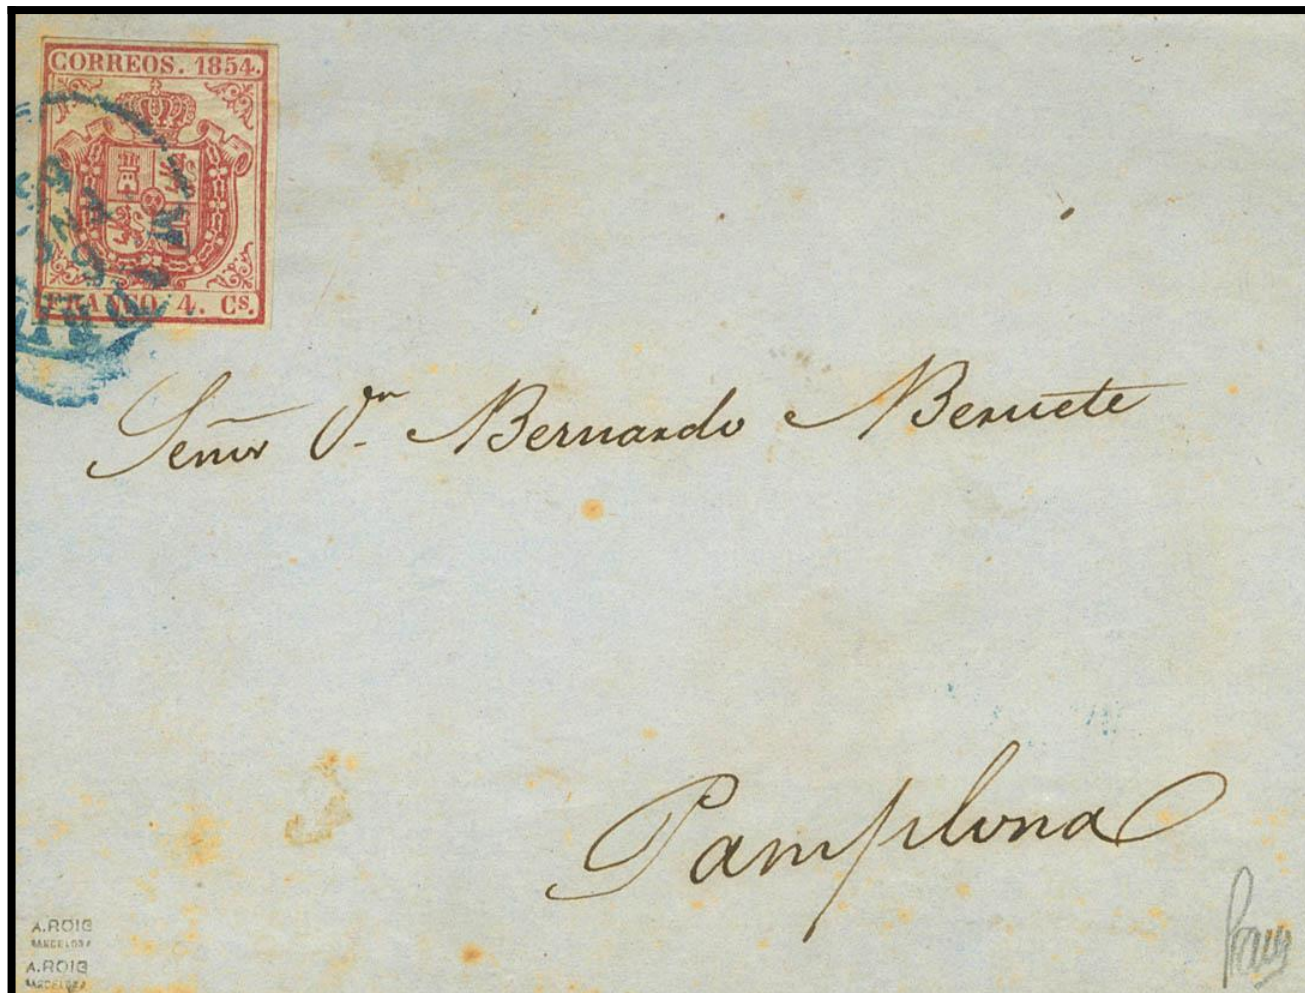 CORREOS. 1854.
FRANCO 4. Cs.
Señor Dn Bernardo Beruete
Pamplona
A.ROIG
BARCELONA
A.ROIG
BARCELONA